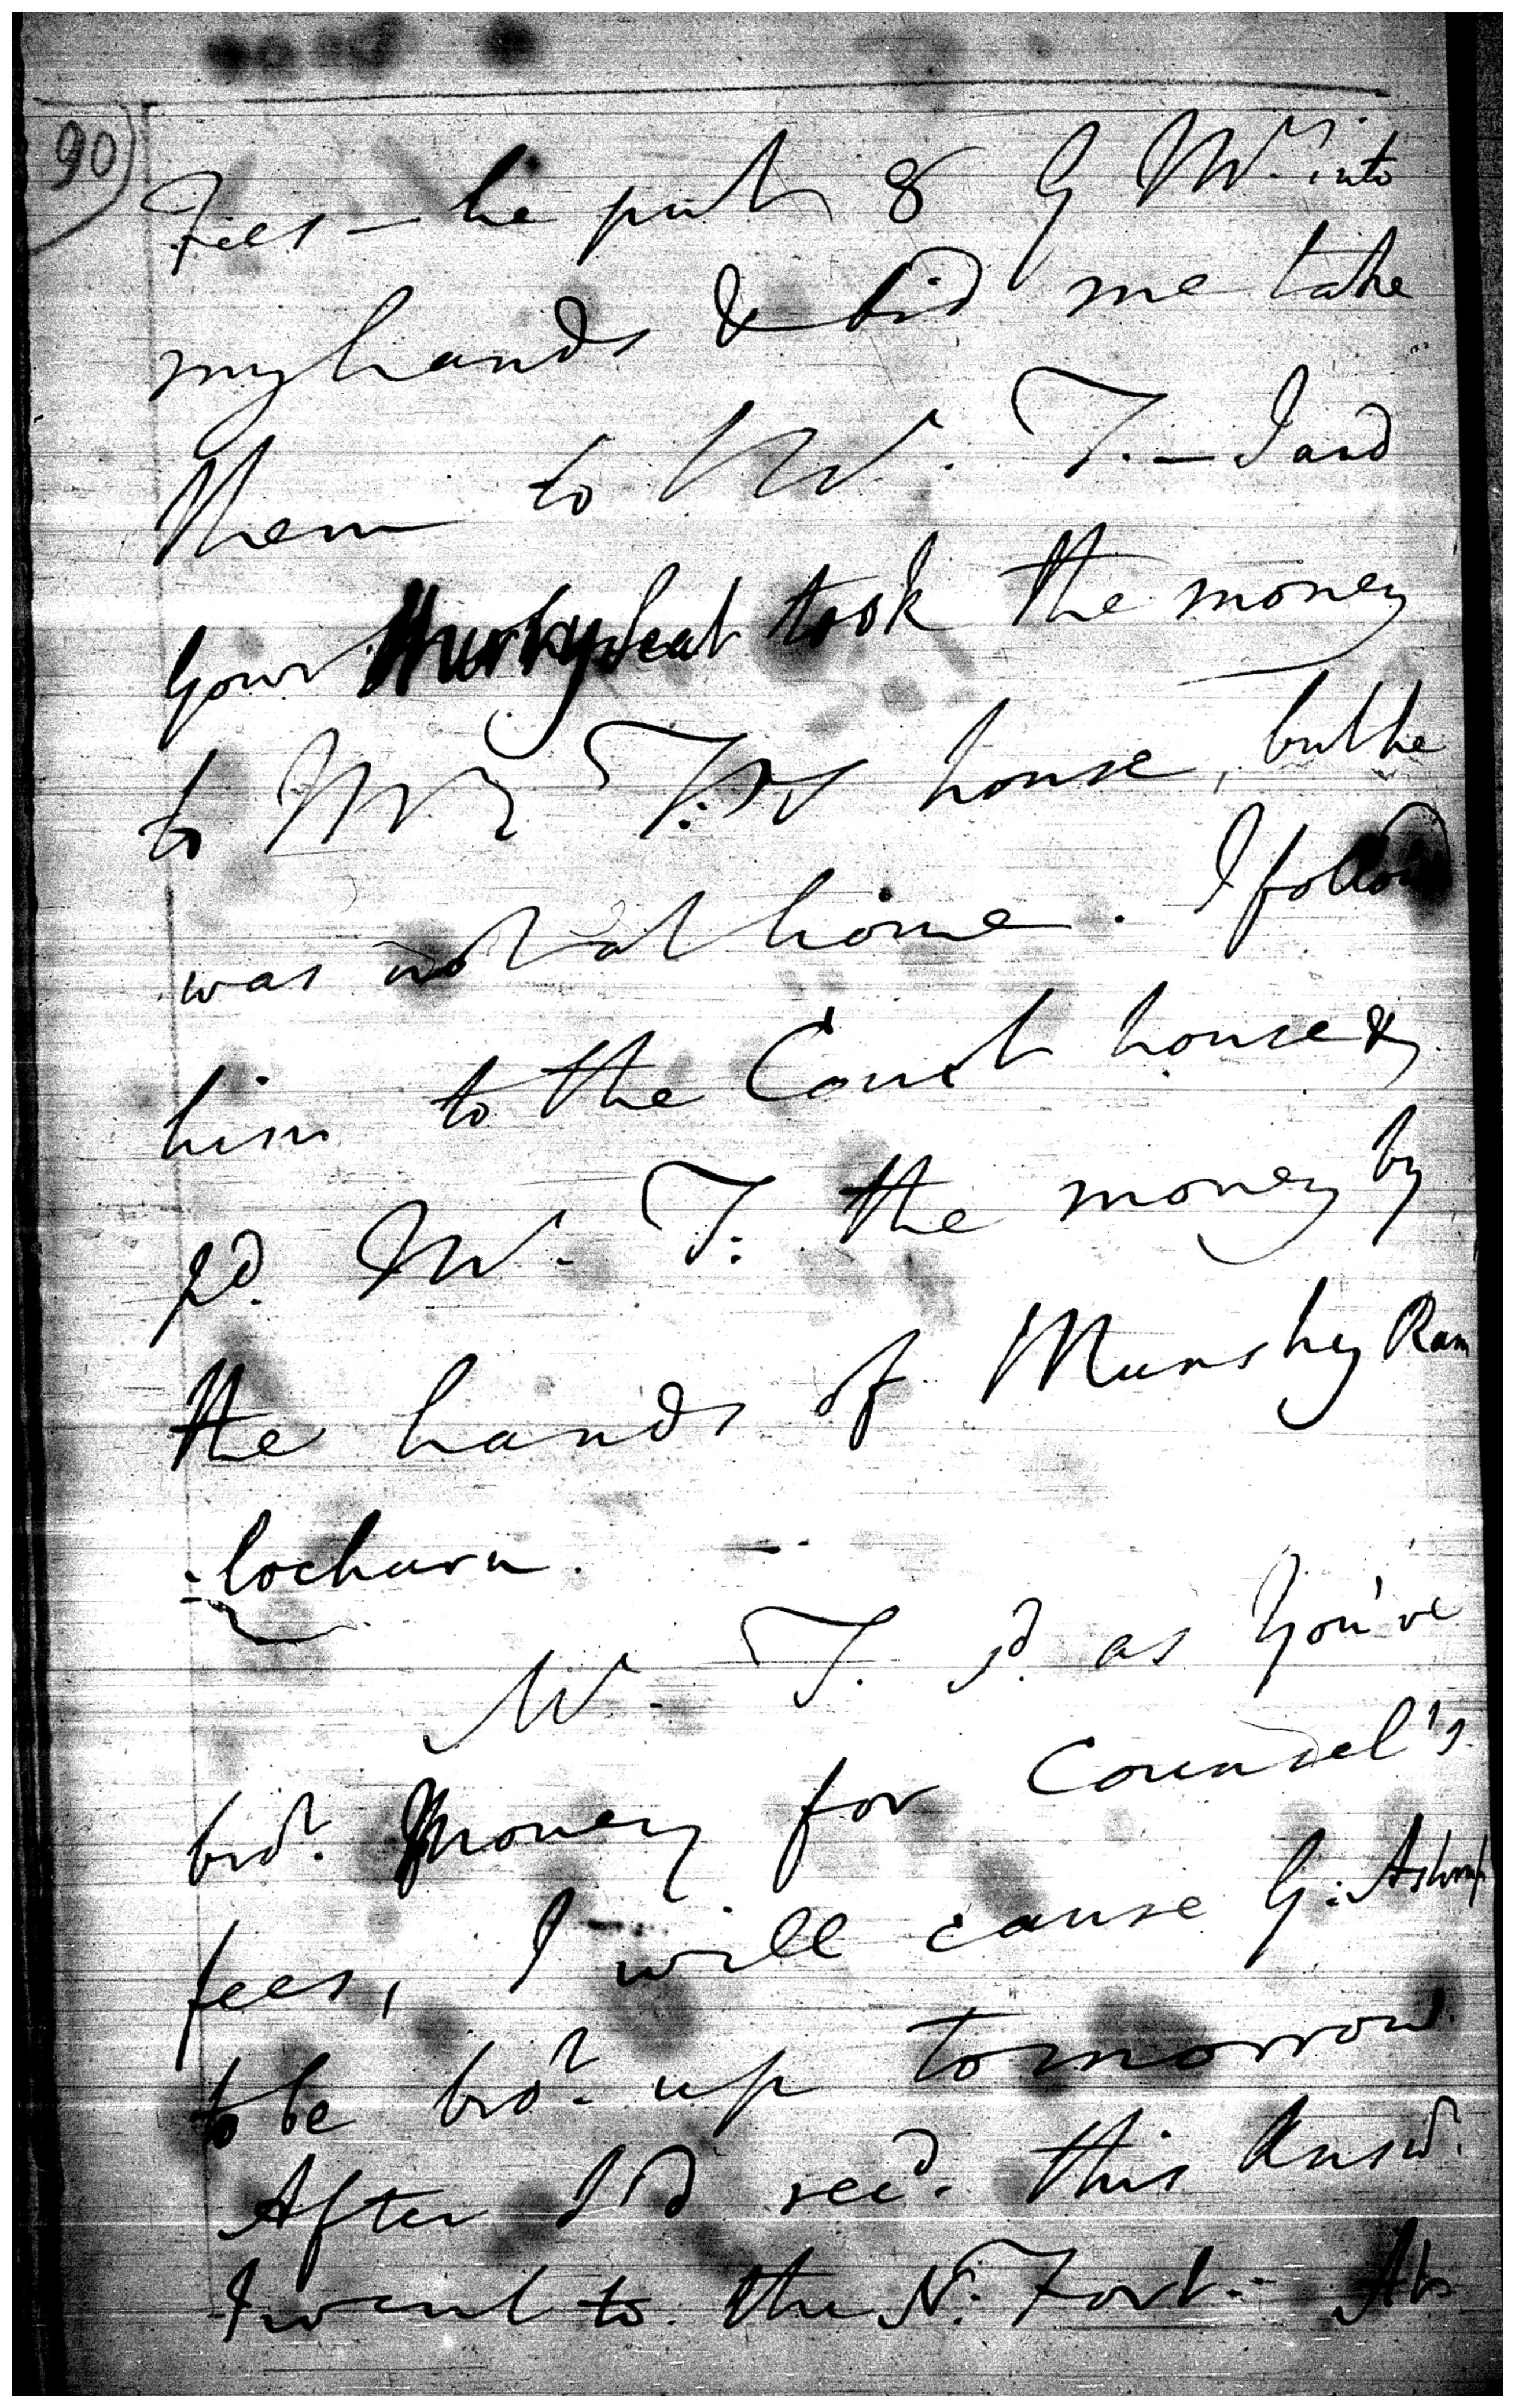 90)
Fees — he put 8 G Mrs. into
my hands & bid me take
them to Mr. T. — I and
your took the money
to Mr. T.'s house, but he
was not at home. I follow'd
him to the Court house &
pd. Mr. T. the money by
the hands of Munshy Ram
-lochurn.
Mr. T. sd. as you've
brot. Money for Counsel's
fees, I will cause G: Ashruf
to be brot. up tomorrow
After I'd recd. this Answr.
I went to the N. Fort.